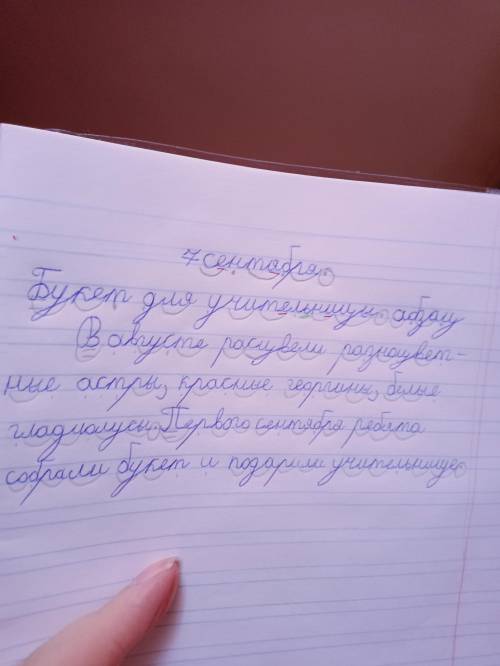 7 сентября.
Букет для учительницы. абзац
В августе расцвели разноцвет-
ные астры, красные георгины, белые
гладиолусы. Первого сентября ребята
собрали букет и подарили учительнице.